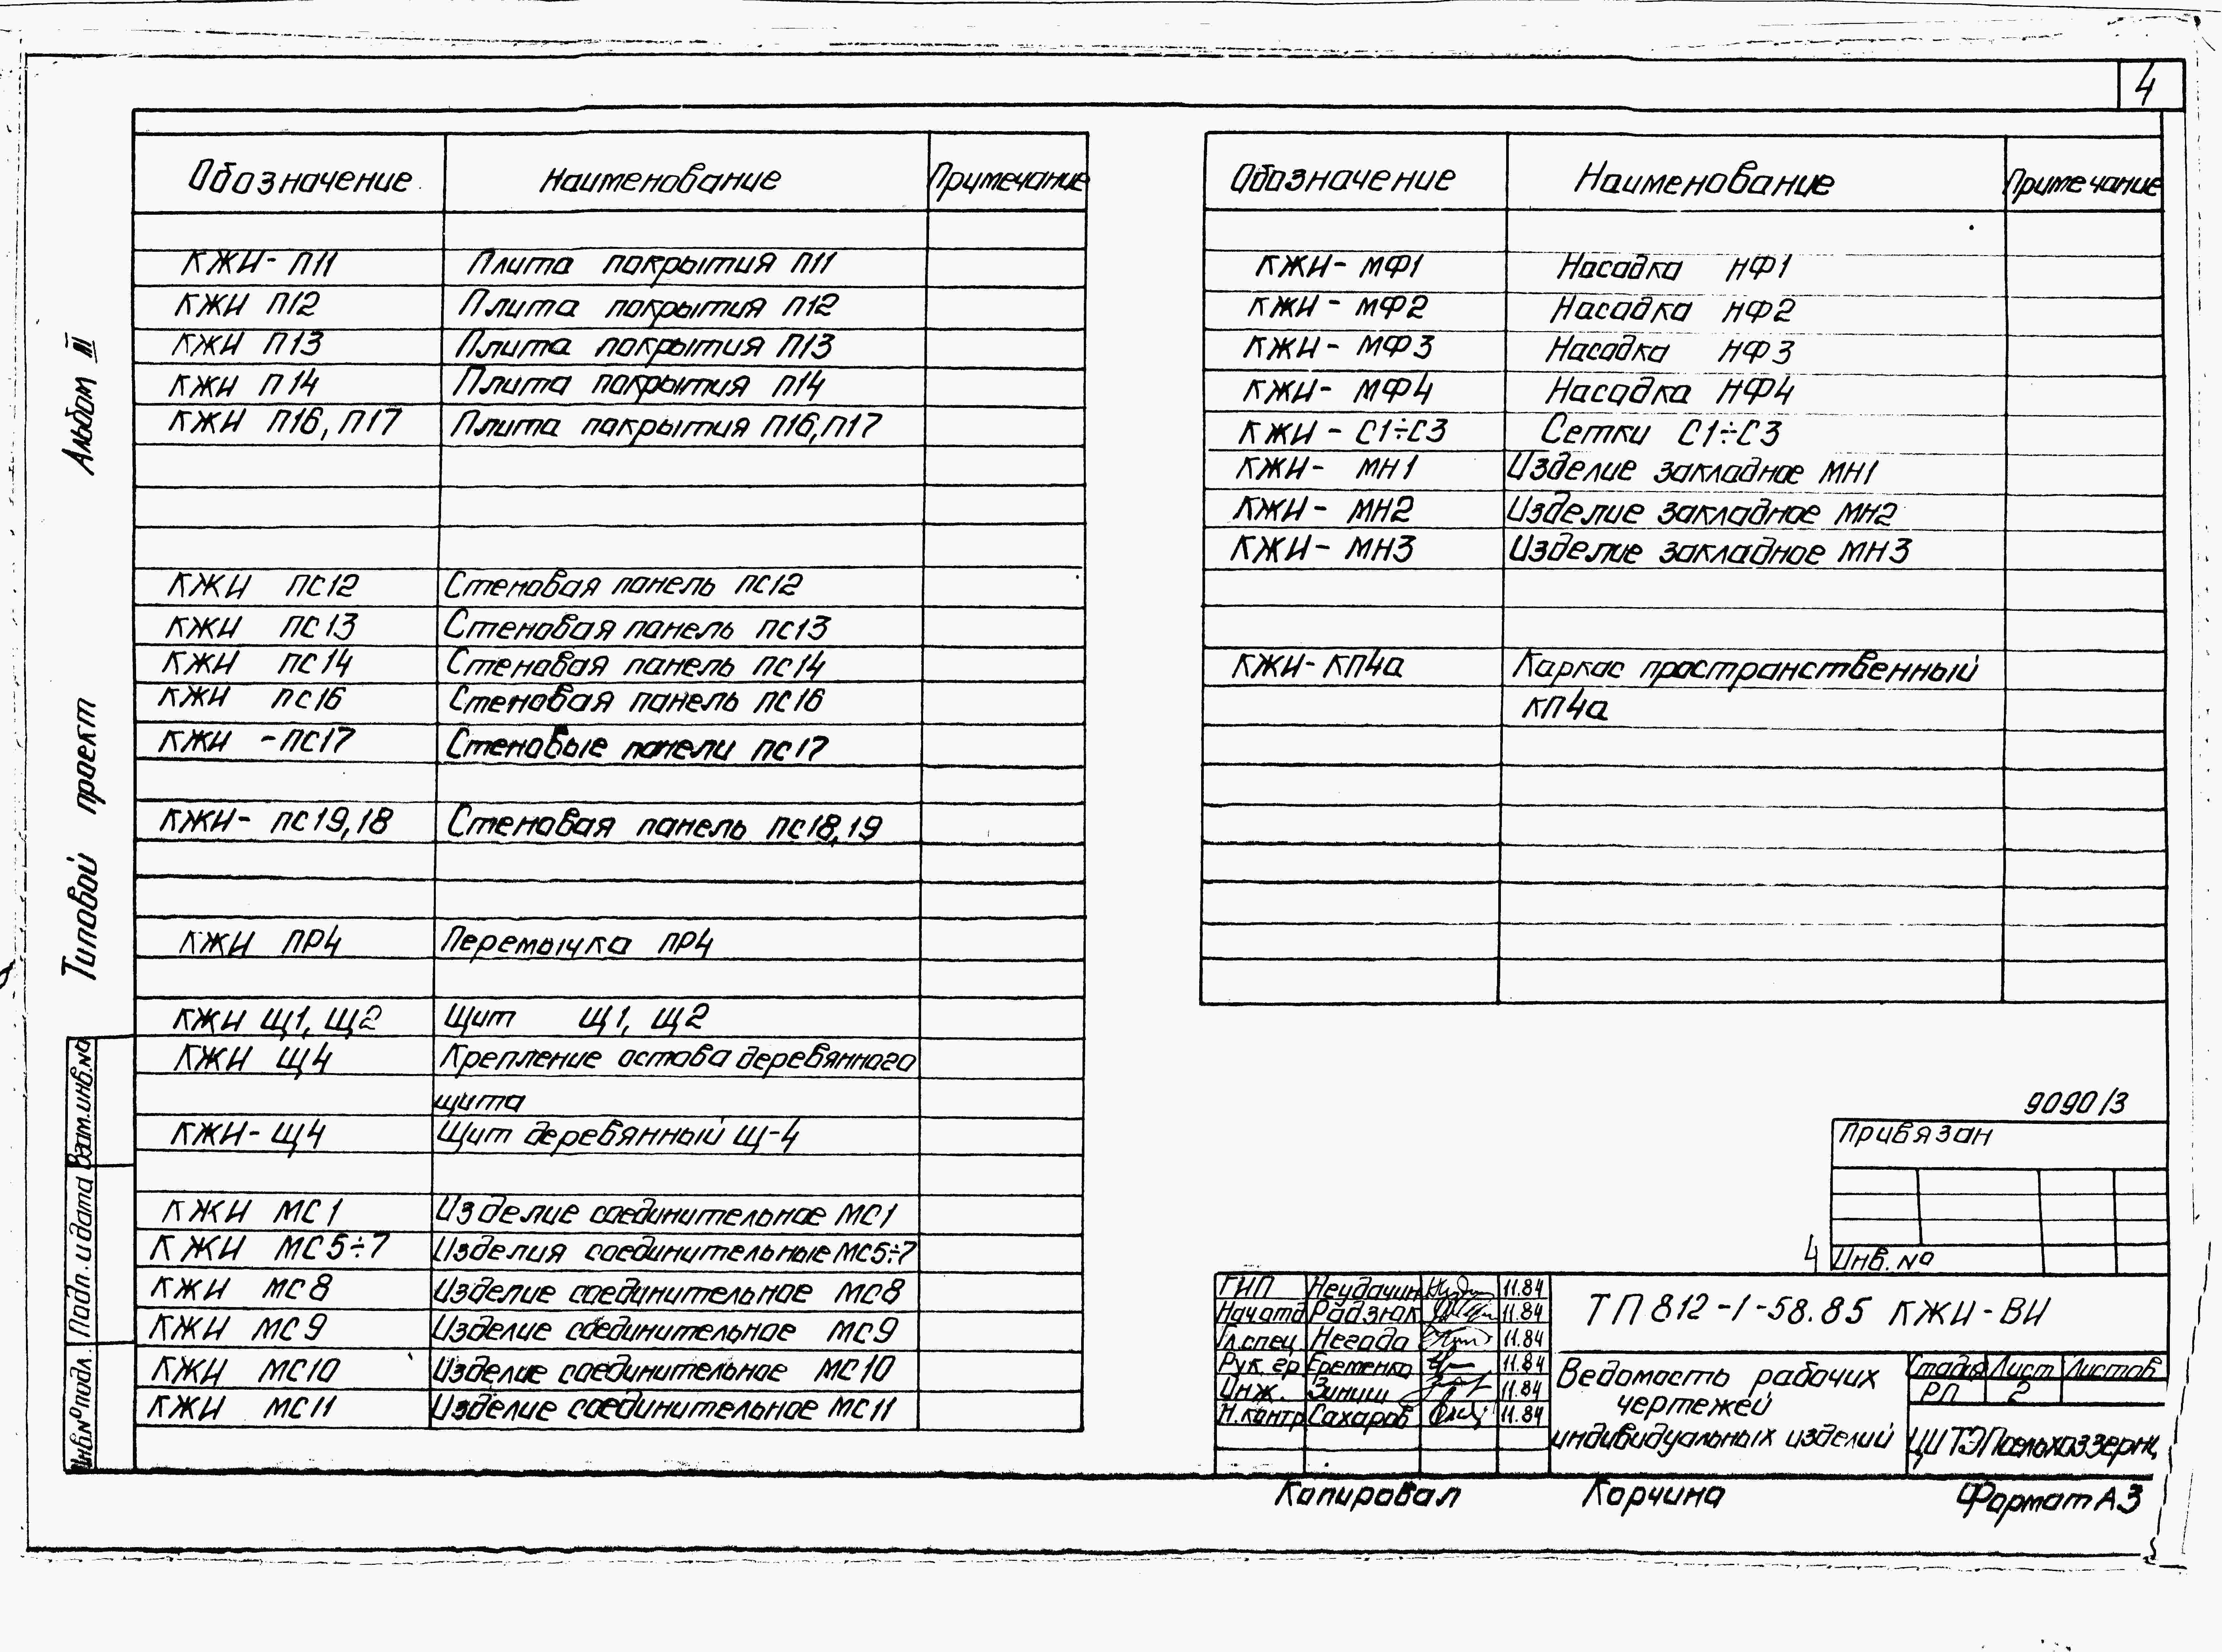 4
Обозначение Наименование Примечание
КЖИ- П11 Плита покрытия П11
КЖИ П12 Плита покрытия П12
КЖИ П13 Плита покрытия П13
КЖИ П14 Плита покрытия П14
КЖИ П16, П17 Плита покрытия П16, П17
КЖИ ПС12 Стеновая панель ПС12
КЖИ ПС13 Стеновая панель ПС13
КЖИ ПС14 Стеновая панель ПС14
КЖИ ПС16 Стеновая панель ПС16
КЖИ -ПС17 Стеновые панели ПС17
КЖИ- ПС19,18 Стеновая панель ПС18,19
КЖИ ПР4 Перемычка ПР4
КЖИ Щ1, Щ2 Щит Щ1, Щ2
КЖИ Щ4 Крепление остова деревянного
щита
КЖИ- Щ4 Щит деревянный Щ-4
КЖИ МС1 Изделие соединительное МС1
КЖИ МС5÷7 Изделия соединительные МС5÷7
КЖИ МС8 Изделие соединительное МС8
КЖИ МС9 Изделие соединительное МС9
КЖИ МС10 Изделие соединительное МС10
КЖИ МС11 Изделие соединительное МС11
Обозначение Наименование Примечание
КЖИ- МФ1 Насадка НФ1
КЖИ- МФ2 Насадка НФ2
КЖИ- МФ3 Насадка НФ3
КЖИ- МФ4 Насадка НФ4
КЖИ - С1÷С3 Сетки С1÷С3
КЖИ- МН1 Изделие закладное МН1
КЖИ- МН2 Изделие закладное МН2
КЖИ- МН3 Изделие закладное МН3
КЖИ-КП4а Каркас пространственный
КП4а
Альбом III
Типовой проект
Взам.инв.№
Подп. и дата
Инв.№ подл.
9090/3
Привязан
4 Инв. №
ГИП Неудачин 11.84
Нач.отд Радзюк 11.84
Гл.спец Негода 11.84
Рук. гр Еременко 11.84
Инж. Зиниш 11.84
Н.контр Сахаров 11.84
ТП 812-1-58.85 КЖИ-ВИ
Ведомость рабочих
чертежей
индивидуальных изделий
Стадия Лист Листов
РП 2
Копировал Корчина Формат А3